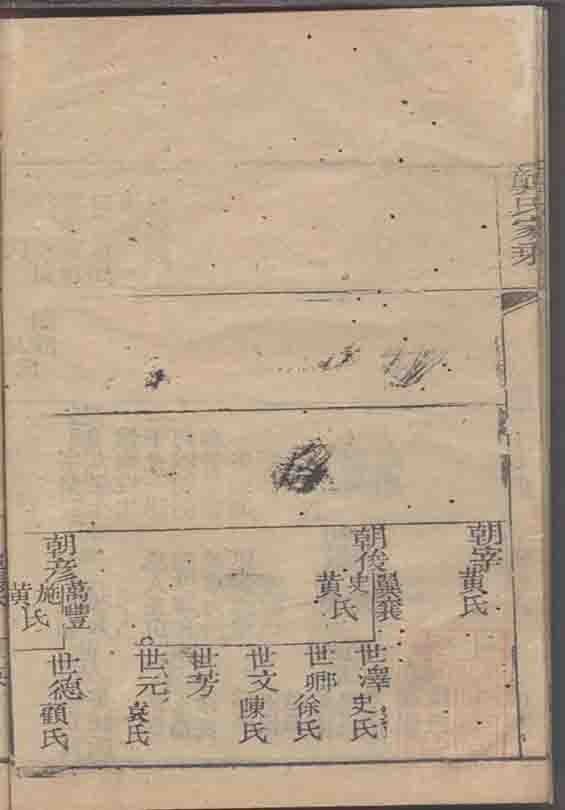 龔氏家乘
朝宰 黃氏
朝俊 翼襄
史 黃氏
世澤 史氏
世卿 徐氏
世文 陳氏
世芳
世元 袁氏
朝彥 萬豐
施 黃氏
世德 顧氏